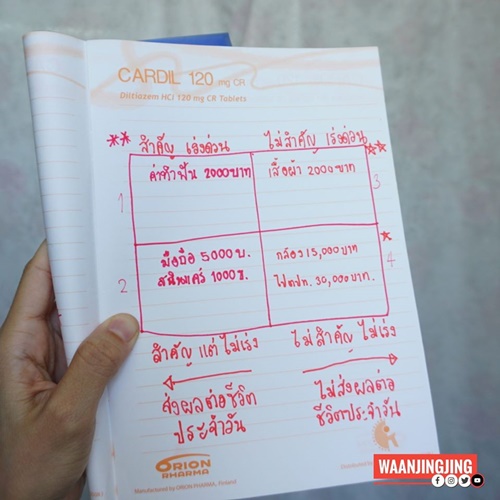 CARDIL 120 mg CR
Diltiazem HCl 120 mg CR Tablets
** สำคัญ เร่งด่วน ไม่สำคัญ เร่งด่วน
1 ค่าทำฟัน 2000 บาท เสื้อผ้า 2000 บาท ** 3
2 มือถือ 5000 บ. กล้อง 15,000 บาท * 4
สกินแคร์ 1000 บ. ไปตปท. 30,000 บาท.
สำคัญ แต่ ไม่เร่ง ไม่สำคัญ ไม่เร่ง
ส่งผลต่อชีวิต ไม่ส่งผลต่อ
ประจำวัน ชีวิตประจำวัน
ORION
PHARMA
Manufactured by ORION PHARMA, Finland
Distributed
WAANJINGJING